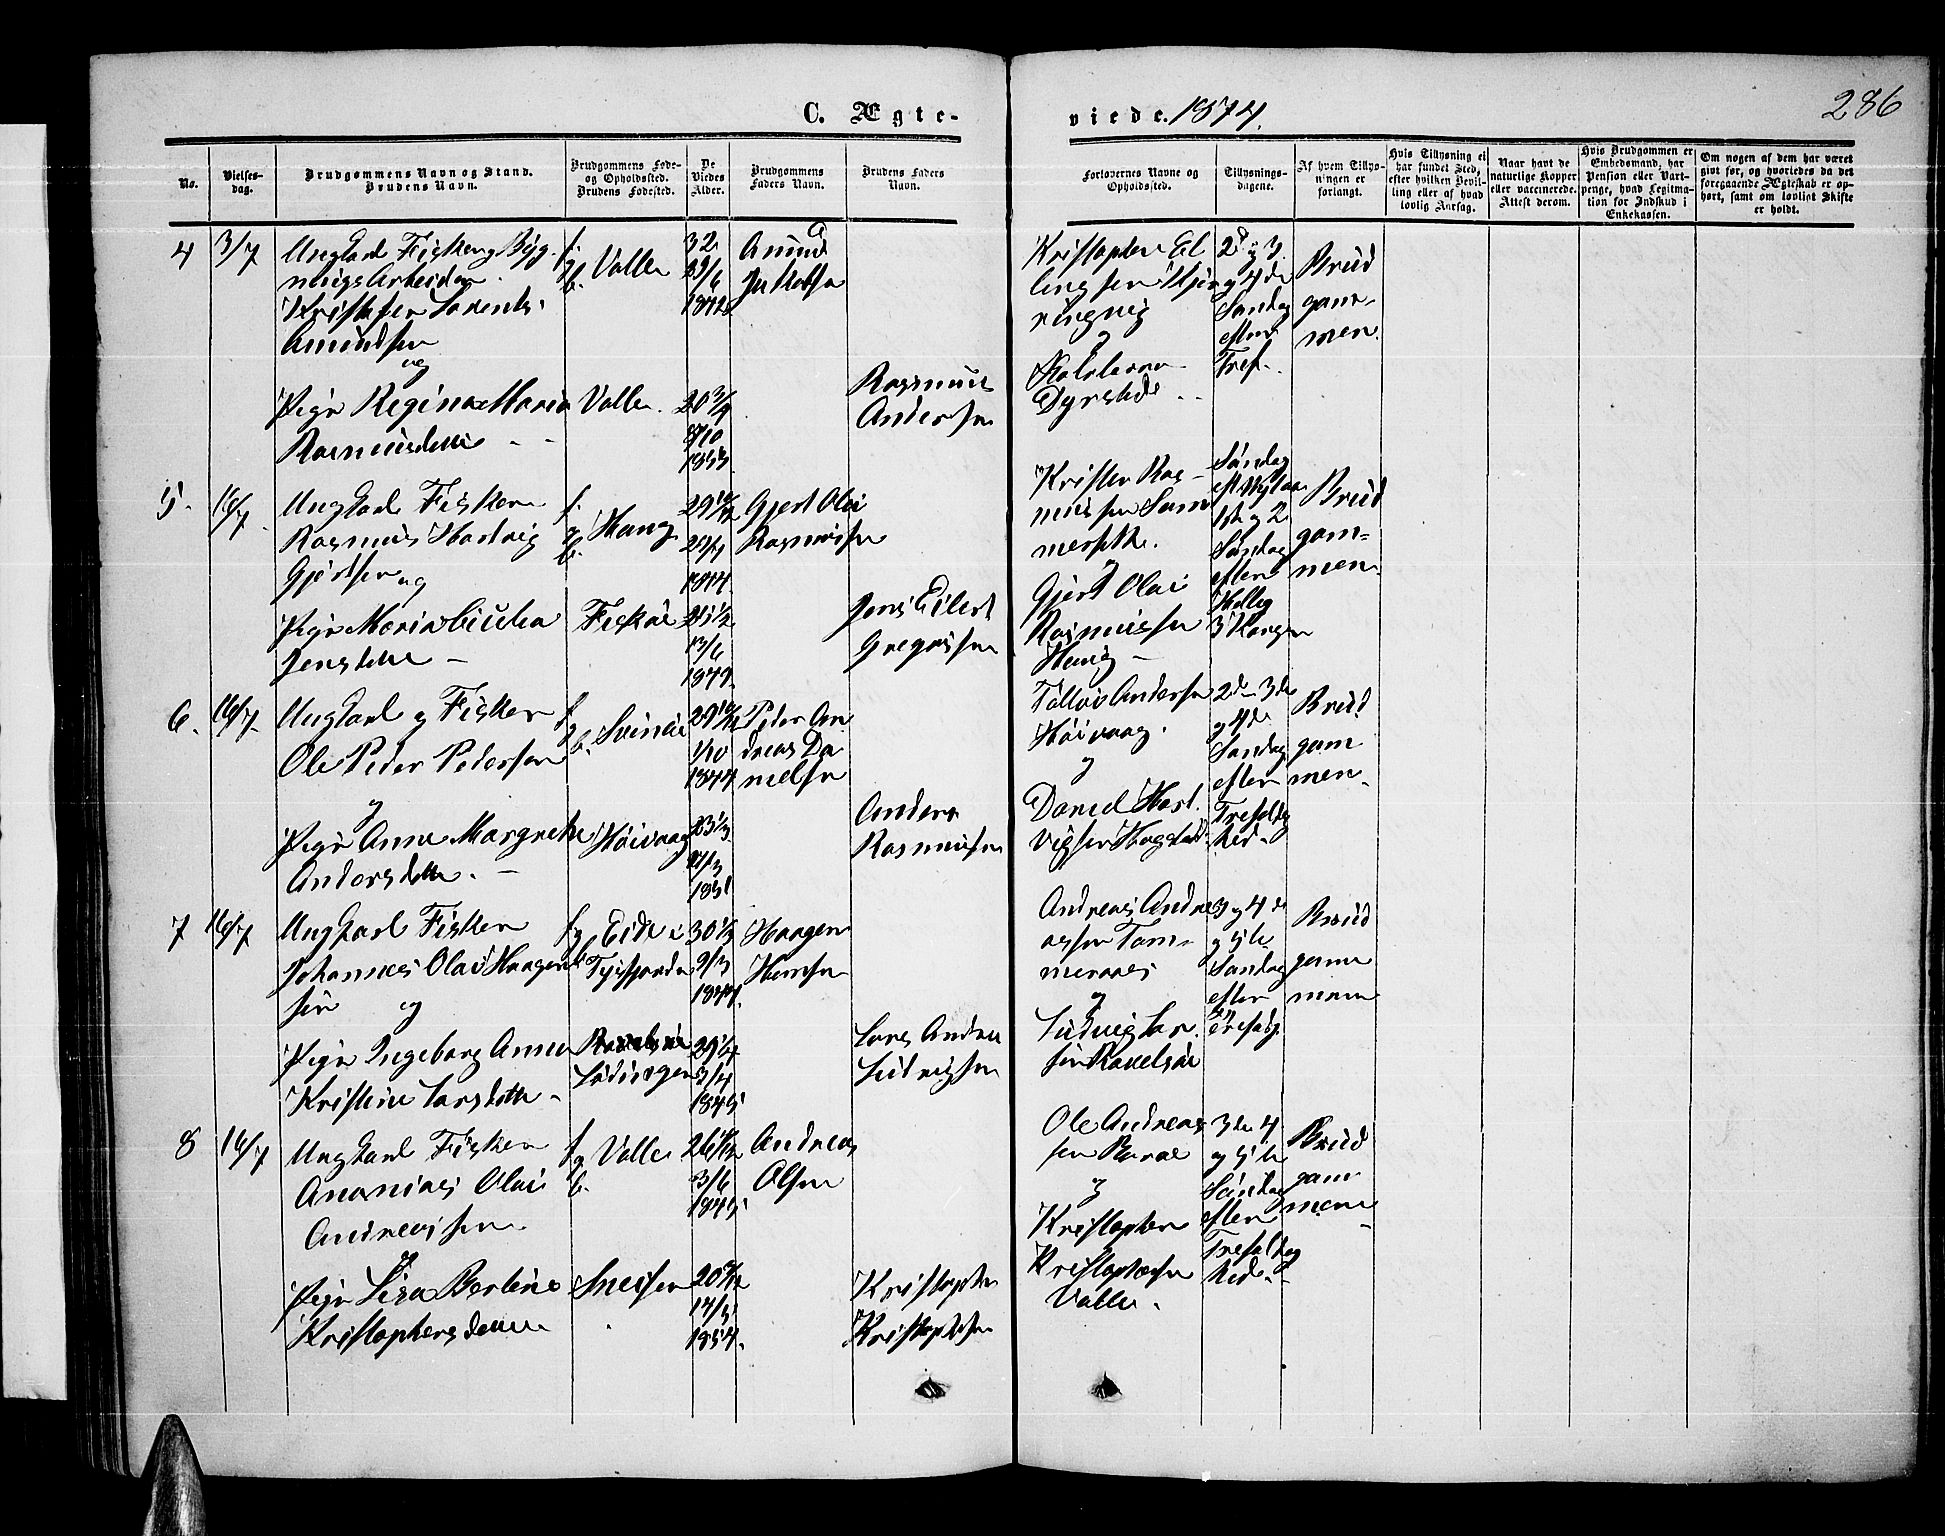 C. Ægte-
viede. 1874.
286
No.
Vielses-
dag.
Brudgommens Navn og Stand.
Brudens Navn.
Brudgommens Føde-
og Opholdssted.
Brudens Fødested.
De
Viedes
Alder.
Brudgommens
Faders Navn.
Brudens Faders
Navn.
Forlovernes Navne og
Opholdssted.
Tillysnings-
dagene.
Af hvem Tillys-
ningen er
forlangt.
Hvis Tillysning ei
har fundet Sted,
efter hvilken Bevil-
ling eller af hvad
lovlig Aarsag.
Naar havt de
naturlige Kopper
eller vaccinerede.
Attest derom.
Hvis Brudgommen er
Embedsmand, har
Pension eller Vart-
penge, hvad Legitma-
tion for Indskud i
Enkekassen.
Om nogen af dem har været
givt før, og hvorledes da det
foregaaende Ægteskab er op-
hørt, samt om lovligt Skifte
er holdt.
4
3/7
Ungkarl Fisker og Byg-
ningsArbeider
Kristofer Lorents
Amundsen
og
Pige Regina Maria
Rasmusdatter
f.
og
b.
Valle
Valle
32
1842
20 3/4
1853
Amund
Jakobsen
Rasmus
Andersen
Kristopher El
lingsen Kjer
ringvig
og
Dyrstad
2d og 3
og 4de
Søndag
efter
Tref.
Brud
gom-
men.
5.
16/7
Ungkarl Fisker
Rasmus Hartvig
Gjertsen og
Pige Maria Cecilia
Jensdatter
f.
og
b.
Haug
Fiskøe
29
1844
25 1/12
13/6
1849
Gjert Olai
Rasmussen
Jens Eilert
Gregersen
Krister Ras-
mussen
Gjert Olai
Rasmussen
Haug
Søndag
1ste og 2
Søndag
efter
Hellig
3 Konger
Brud
gom-
men.
6.
16/7
Ungkarl og Fisker
Ole Peder Pedersen
og
Pige Anne Margrethe
Andersdatter
f.
g
b.
Svinøe
Høivaag
29
1/10
1844
23 1/3
1851
Peder An
dreas Da
nielsen
Anders
Rasmussen
Andersen
Høivaag
og
Daniel Hart
vigsen
2de 3de
og 4de
Søndag
efter
Trefoldig
hed
Brud
gom
men.
7
16/7
Ungkarl Fisker
Johannes Olai Haagen
sen og
Pige Ingeborg Anna
Kristine Larsdatter
f
g
Eide i
Tysfjorden
Lødingen
30 1/3
9/3
1844
29 1/4
3/4
1845
Haagen
Hansen
Lars Andrea
Ludvigsen
Andreas Andre
assen Tom-
mernes
og
Ludvig Lar
sen
3 og 4de
og 5te
Søndag
efter
Trefoldg.
Brud
gom
men
8
16/7
Ungkarl Fisker
Ananias Olai
Andreassen
og
Pige Lisa Berline
Kristophersdatter
f.
g
b.
Valle
26
3/6
1845
20
14/5
1854
Andreas
Olsen
Kristopher
Kristophersen
Ole Andreas
sen
og
Kristopher
Kristophersen
Valle
3de 4
og 5te
Søndag
efter
Trefoldig
hed
Brud
gom
men